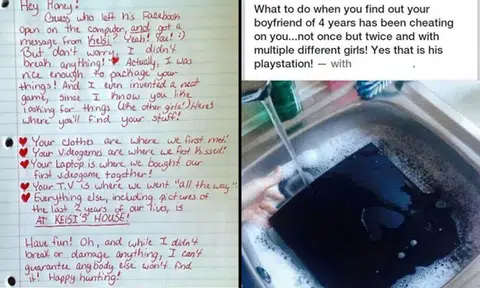 Hey Honey!
Guess who left his Facebook
open on the computer, and got a
message from Keisi? Yeah! You! :)
But don't worry, I didn't
break anything! Actually, I was
nice enough to package your
things! And I even invented a neat
game, since I know you like
looking for things (like other girls!) Here's
where you'll find your stuff!
Your clothes are where we first met!
Your Videogames are where we first kissed!
Your Laptop is where we bought our
first videogame together!
Your T.V is where we went "all the way"
Everything else, including pictures of
the last 2 years of our lives, is
AT KEISI'S HOUSE!
Have fun! Oh, and while I didn't
break or damage anything, I can't
guarantee anybody else won't find
it! Happy hunting!
What to do when you find out your
boyfriend of 4 years has been cheating
on you...not once but twice and with
multiple different girls! Yes that is his
playstation! — with